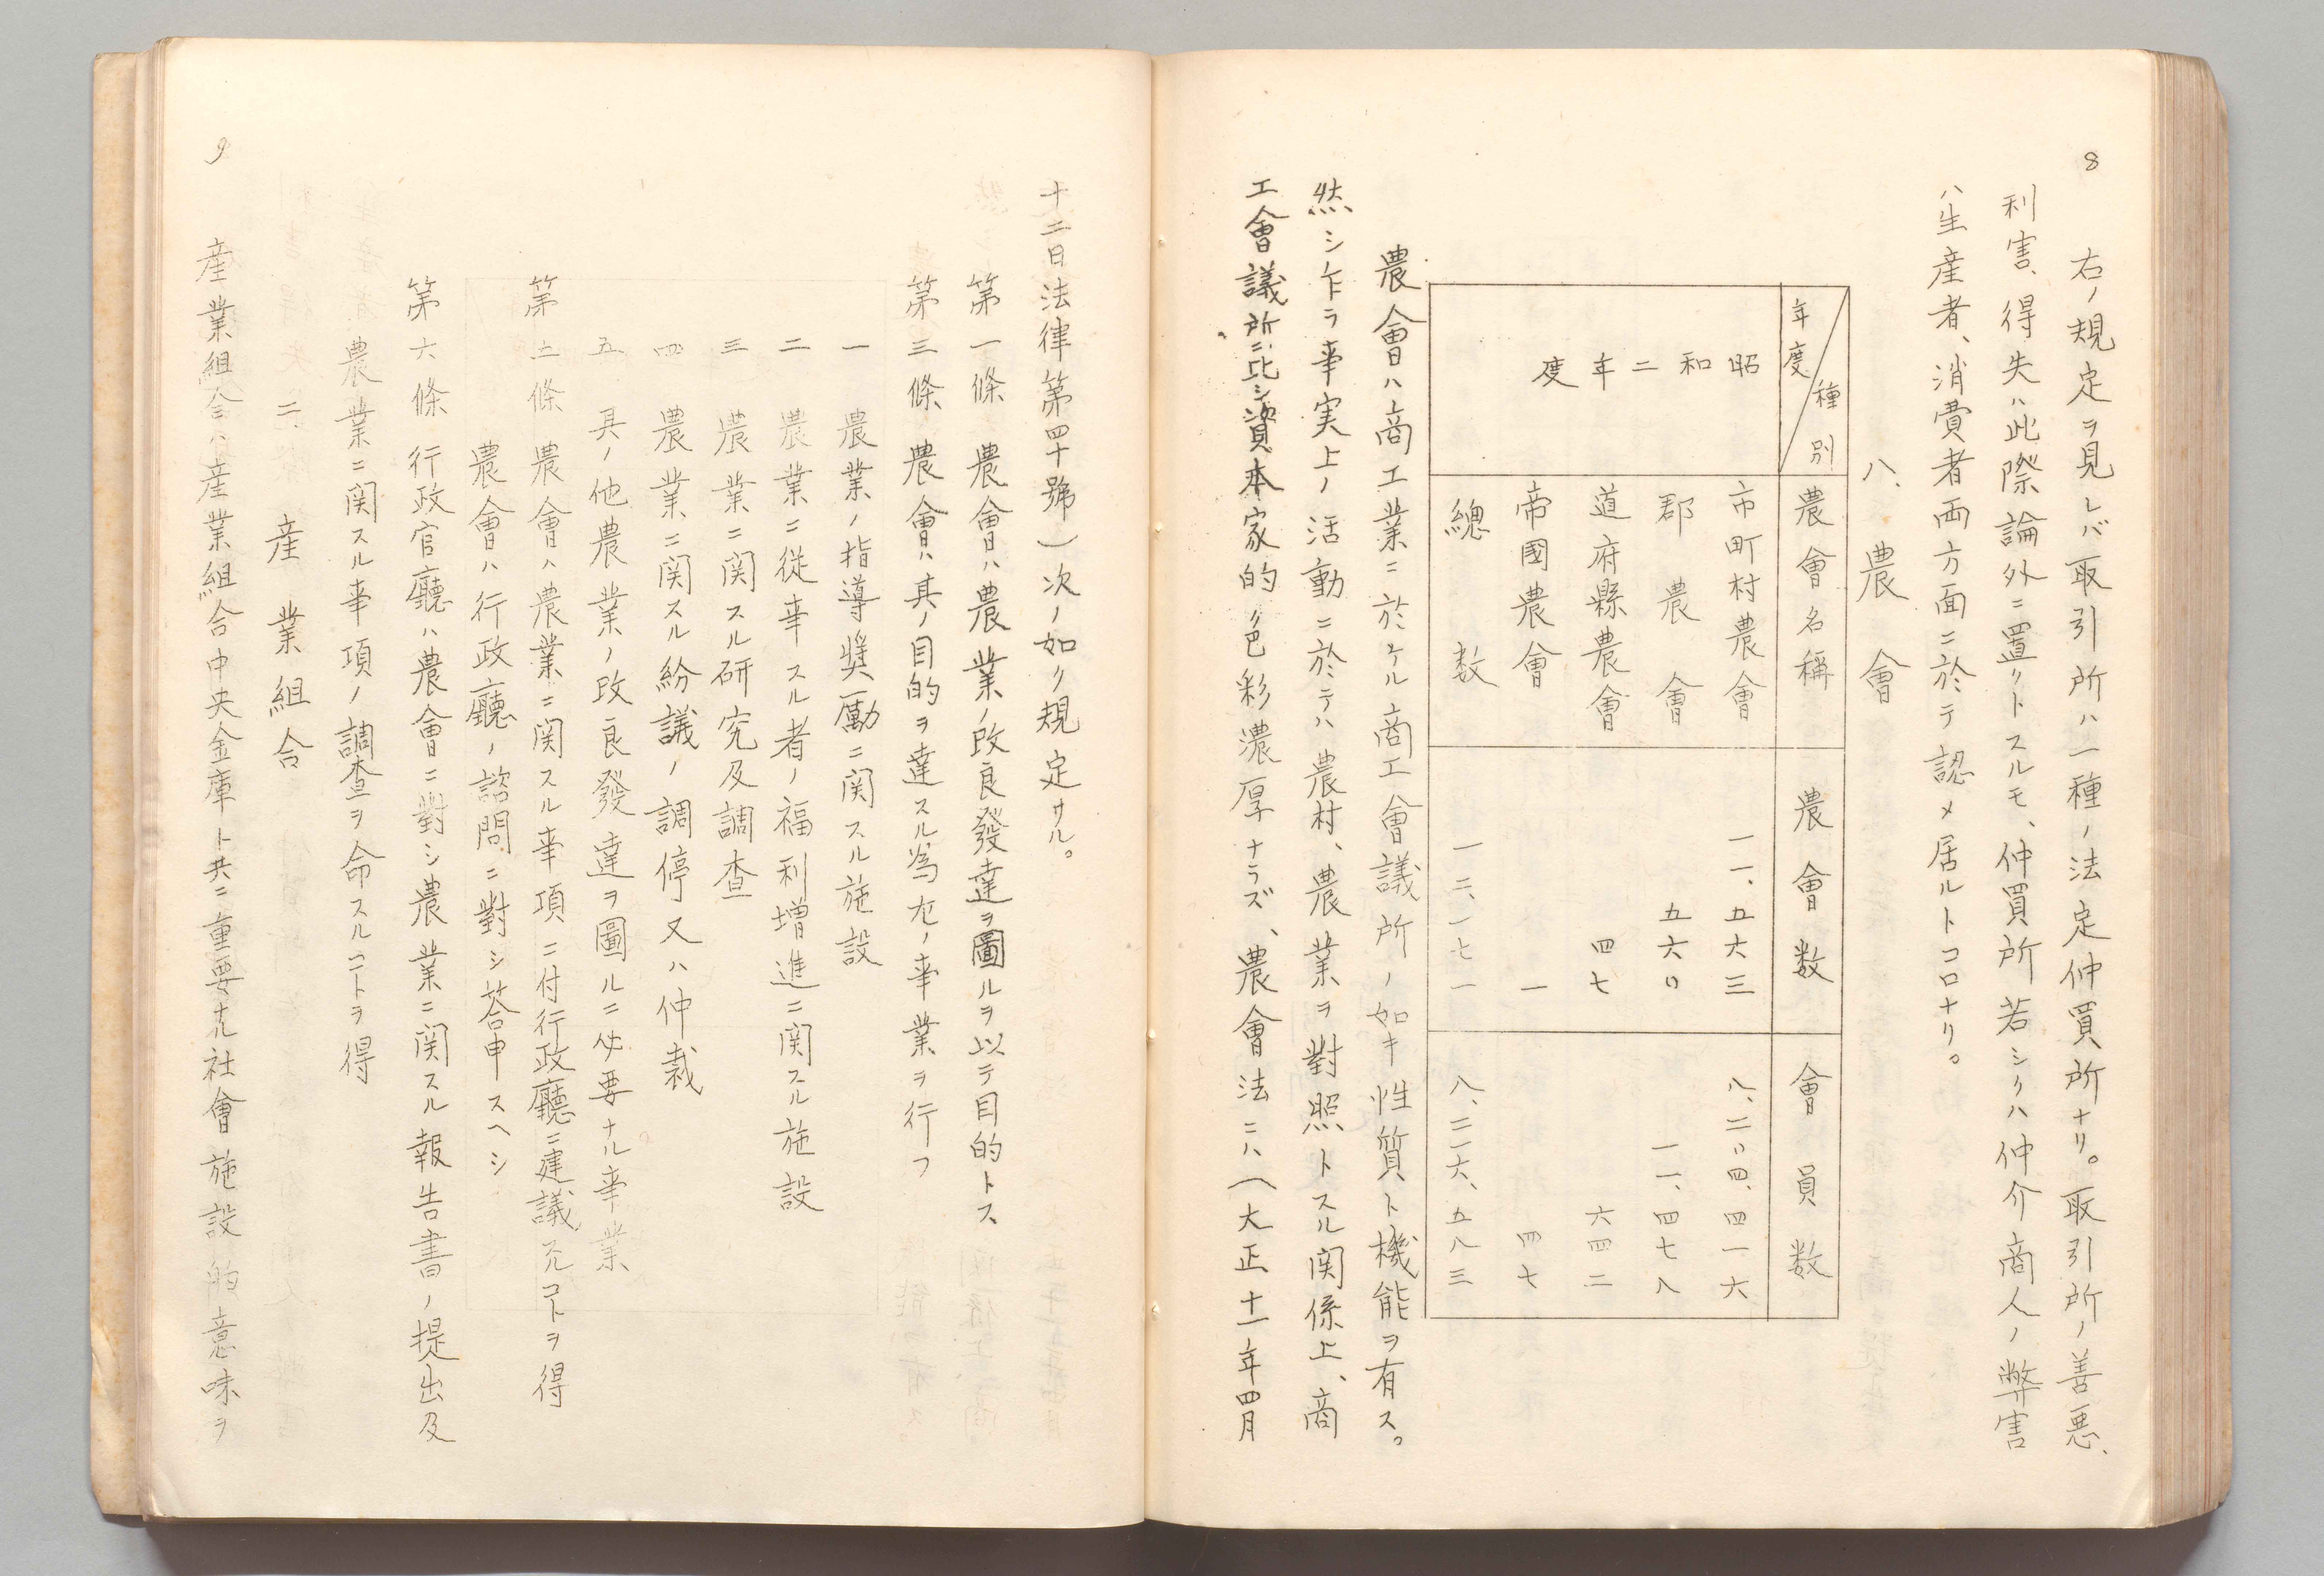 8
右ノ規定ヲ見レバ取引所ハ一種ノ法定仲買所ナリ。取引所ノ善悪、
利害、得失ハ此際論外ニ置クトスルモ、仲買所若シクハ仲介商人ノ弊害
ハ生産者、消費者両方面ニ於テ認メ居ルトコロナリ。
八、農會
年度 種別 農會名稱 農會数 會員数
昭和二年度
市町村農會 一一、五六三 八、二〇四、四一六
郡農會 五六〇 一一、四七八
道府縣農會 四七 六四二
帝國農會 一 四七
總数 一二、一七一 八、二一六、五八三
農會ハ商工業ニ於ケル商工會議所ノ如キ性質ト機能ヲ有ス。
然シ乍ラ事実上ノ活動ニ於テハ農村、農業ヲ對照トスル関係上、商
工會議所ニ比シ資本家的ノ色彩濃厚ナラズ、農會法ニハ(大正十一年四月
十二日法律第四十號)次ノ如ク規定サル。
第一條 農會ハ農業ノ改良發達ヲ圖ルヲ以テ目的トス
第三條 農會ハ其ノ目的ヲ達スル為左ノ事業ヲ行フ
一 農業ノ指導奨勵ニ関スル施設
二 農業ニ從事スル者ノ福利増進ニ関スル施設
三 農業ニ関スル研究及調査
四 農業ニ関スル紛議ノ調停又ハ仲裁
五 其ノ他農業ノ改良發達ヲ圖ルニ必要ナル事業
第五條 農會ハ農業ニ関スル事項ニ付行政廳ニ建議スルコトヲ得
農會ハ行政廳ノ諮問ニ對シ答申スヘシ
第六條 行政官廳ハ農會ニ對シ農業ニ関スル報告書ノ提出及
農業ニ関スル事項ノ調査ヲ命スルコトヲ得
二、産業組合
9
産業組合ハ産業組合中央金庫ト共ニ重要ナル社會施設的意味ヲ